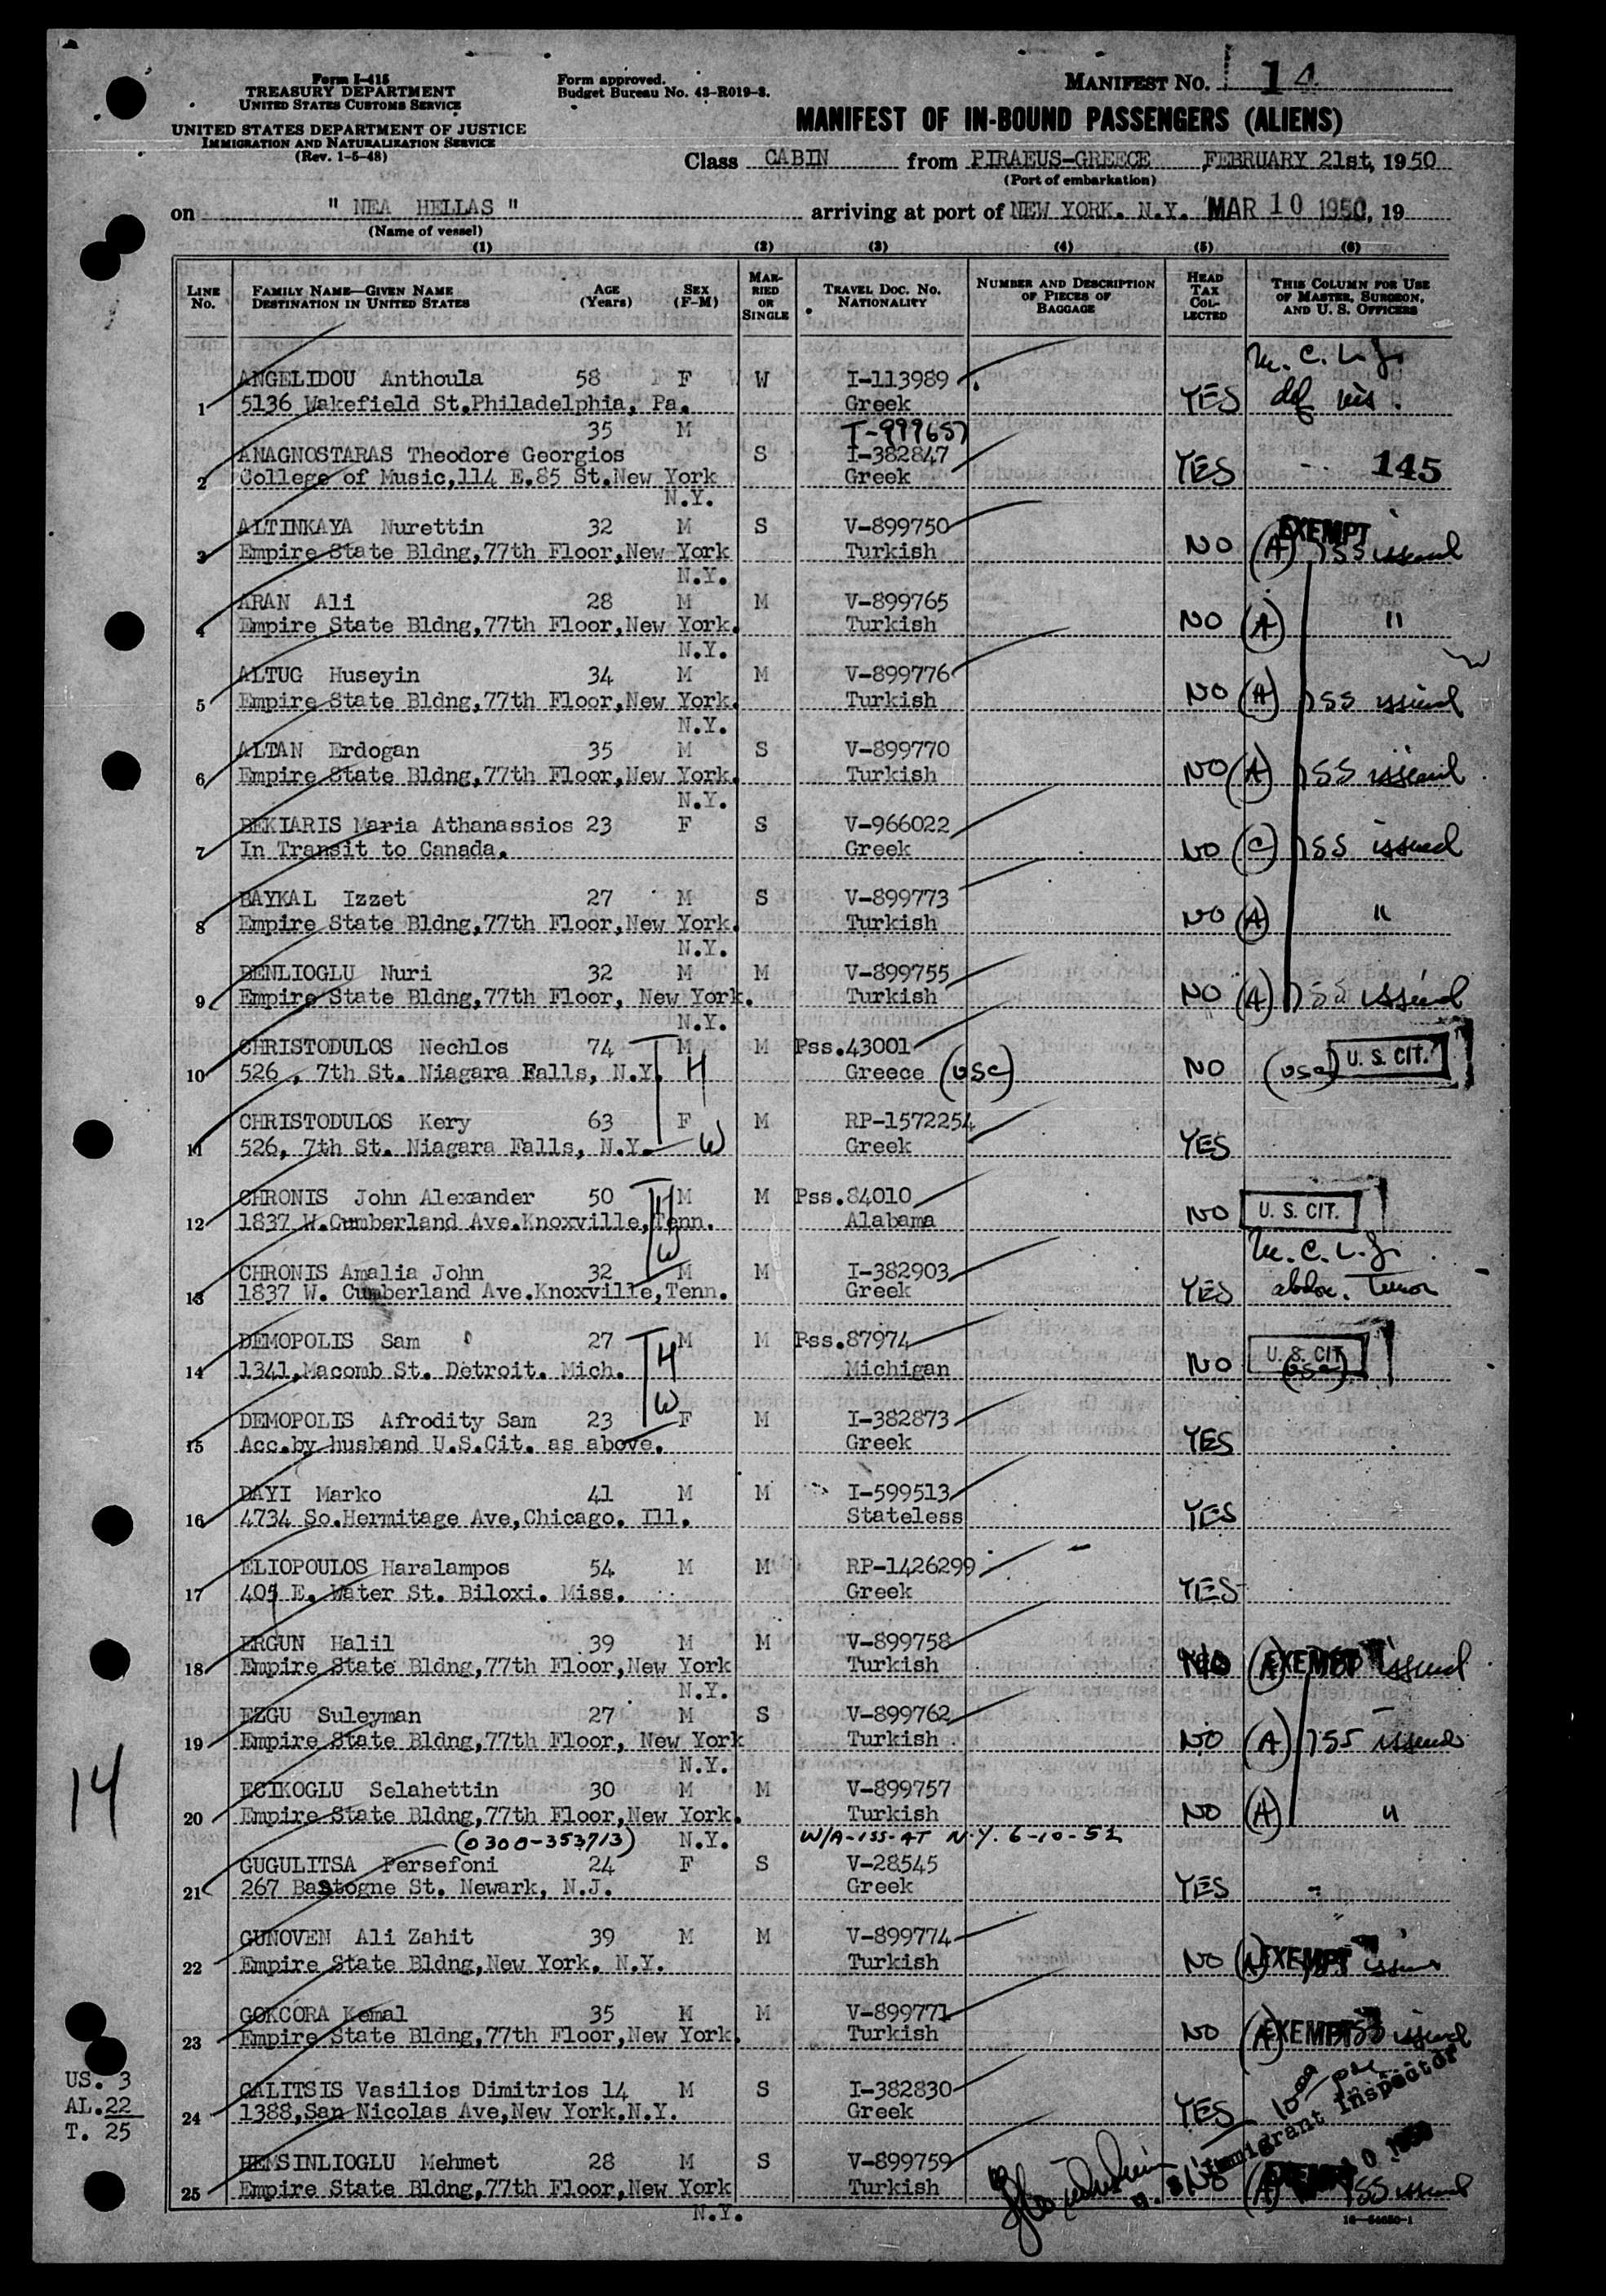 Form I-415
TREASURY DEPARTMENT
UNITED STATES CUSTOMS SERVICE
UNITED STATES DEPARTMENT OF JUSTICE
IMMIGRATION AND NATURALIZATION SERVICE
(Rev. 1-5-48)
Form approved.
Budget Bureau No. 43-R019-3.
MANIFEST NO. 14
MANIFEST OF IN-BOUND PASSENGERS (ALIENS)
Class CABIN from PIRAEUS-GREECE, FEBRUARY 21st, 1950
(Port of embarkation)
on " NEA HELLAS " arriving at port of NEW YORK. N.Y. MAR 10 1950, 19
(Name of vessel)
(1) (2) (3) (4) (5) (6)
LINE NO. FAMILY NAME—GIVEN NAME DESTINATION IN UNITED STATES AGE (Years) SEX (F-M) MARRIED OR SINGLE TRAVEL DOC. NO. NATIONALITY NUMBER AND DESCRIPTION OF PIECES OF BAGGAGE HEAD TAX COLLECTED THIS COLUMN FOR USE OF MASTER, SURGEON, AND U. S. OFFICERS
ANGELIDOU Anthoula 58 F W I-113989 M.C.L.J.
1 5136 Wakefield St.Philadelphia, Pa. Greek YES def vis.
35 M T-999657
ANAGNOSTARAS Theodore Georgios S I-382847
2 College of Music,114 E.85 St.New York Greek YES 145
N.Y.
ALTINKAYA Nurettin 32 M S V-899750 EXEMPT
3 Empire State Bldng,77th Floor,New York Turkish NO (A) 155 issued
N.Y.
ARAN Ali 28 M M V-899765
4 Empire State Bldng,77th Floor,New York. Turkish NO (A) "
N.Y.
ALTUG Huseyin 34 M M V-899776
5 Empire State Bldng,77th Floor,New York. Turkish NO (A) 155 issued
N.Y.
ALTAN Erdogan 35 M S V-899770
6 Empire State Bldng,77th Floor,New York. Turkish NO (A) 155 issued
N.Y.
BEKIARIS Maria Athanassios 23 F S V-966022
7 In Transit to Canada. Greek NO (C) 155 issued
BAYKAL Izzet 27 M S V-899773
8 Empire State Bldng,77th Floor,New York. Turkish NO (A) "
N.Y.
BENLIOGLU Nuri 32 M M V-899755
9 Empire State Bldng,77th Floor, New York. Turkish NO (A) 155 issued
N.Y.
CHRISTODULOS Nechlos 74 M M Pss.43001 U. S. CIT.
10 526 , 7th St. Niagara Falls, N.Y. H Greece (USC) NO (USC)
CHRISTODULOS Kery 63 F M RP-1572254
11 526, 7th St. Niagara Falls, N.Y. W Greek YES
CHRONIS John Alexander 50 H M M Pss.84010
12 1837 W.Cumberland Ave.Knoxville,Tenn. Alabama NO U. S. CIT.
W M.C.L.J.
CHRONIS Amalia John 32 M M I-382903
13 1837 W. Cumberland Ave.Knoxville,Tenn. Greek YES abdom. Tumor
DEMOPOLIS Sam 27 M M Pss.87974
14 1341,Macomb St. Detroit. Mich. H Michigan NO U. S. CIT. (USC)
W
DEMOPOLIS Afrodity Sam 23 F M I-382873
15 Acc.by husband U.S.Cit. as above. Greek YES
DAYI Marko 41 M M I-599513
16 4734 So.Hermitage Ave,Chicago. Ill. Stateless YES
ELIOPOULOS Haralampos 54 M M RP-1426299
17 405 E. Water St. Biloxi. Miss. Greek YES
ERGUN Halil 39 M M V-899758
18 Empire State Bldng,77th Floor,New York Turkish NO (A) EXEMPT issued
N.Y.
EZGU Suleyman 27 M S V-899762
19 Empire State Bldng,77th Floor, New York Turkish NO (A) 155 issued
N.Y.
ECIKOGLU Selahettin 30 M M V-899757
20 Empire State Bldng,77th Floor,New York. Turkish NO (A) "
(0300-353713) N.Y. W/A-ISS-AT N.Y. 6-10-52
GUGULITSA Persefoni 24 F S V-28545
21 267 Bastogne St. Newark, N.J. Greek YES
GUNOVEN Ali Zahit 39 M M V-899774
22 Empire State Bldng,New York. N.Y. Turkish NO (A) EXEMPT
GOKCORA Kemal 35 M M V-899771
23 Empire State Bldng,77th Floor,New York. Turkish NO (A) EXEMPT issued
GALITSIS Vasilios Dimitrios 14 M S I-382830
24 1388,San Nicolas Ave,New York.N.Y. Greek YES
Immigrant Inspector
HEMSINLIOGLU Mehmet 28 M S V-899759
25 Empire State Bldng,77th Floor,New York Turkish NO (A) 155 issued
N.Y.
14
US. 3
AL.22
T. 25